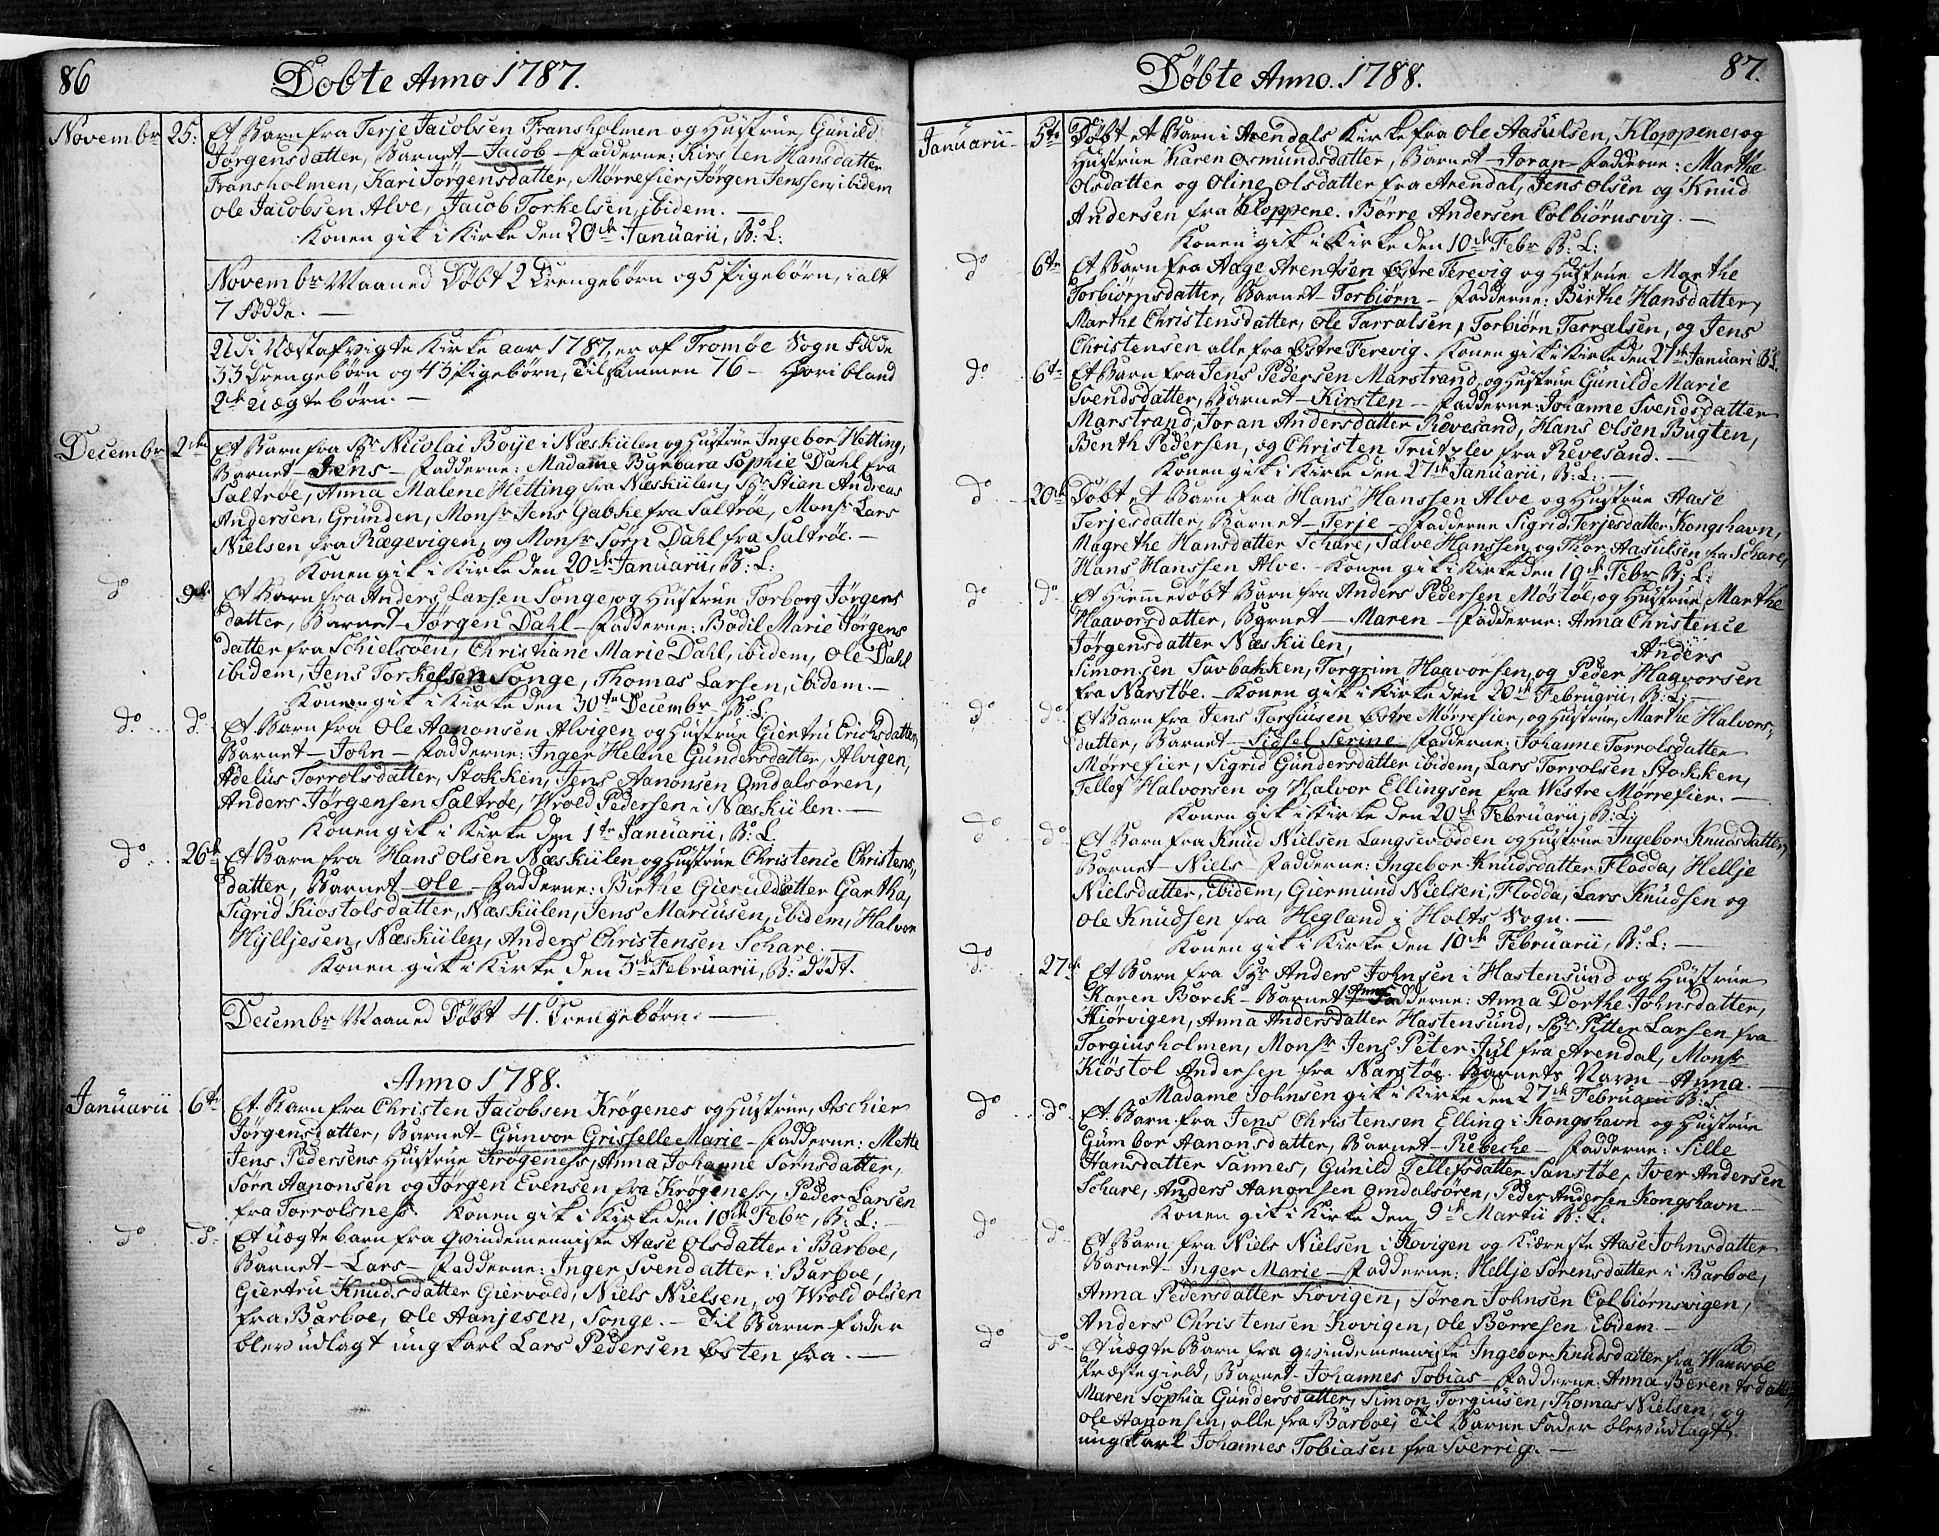 86
Dobte Anno 1787.
Novembr 25. Et Barn fra Terje Jacobsen Fransholmen og Hustrue, Gunild
Jørgensdatter, Barnet - Jacob - Fadderne: Kirsten Hansdatter
Fransholmen, Kari Jørgensdatter, Mørrefier, Jørgen Jenssen, ibidem
Ole Jacobsen Alve, Jacob Torkelsen, ibidem. -
Konen gik i Kirke den 20de Januarii, B: L:
Novembr Maaned Døbt 2 Drengebørn og 5 Pigebørn, i alt
7 Fødde. -
Udi Næstafvigte Kirke aar 1787, er af Tromøe Sogn Fødde
33 Drengebørn og 43 Pigebørn, Tilsammen 76 - Hvoribland
2de Uægte børn. -
Decembr 2den Et Barn fra Sr Nicolai Boye i Næskilen og Hustrue Ingebor Hetting,
Barnet - Jens - Fadderne: Madame Barbara Sophie Dahl fra
Saltrøe, Anna Malene Hetting fra Næskilen, Sr Stian Andreas
Andersen, Grunden, Monsr Jens Gabke fra Saltrøe, Monsr Lars
Nielsen fra Rægevigen, og Monsr Sørn Dahl fra Saltrøe. -
Konen gik i Kirke den 20de Januarii, B: L:
do 9de Et Barn fra Anders Larsen Songe, og Hustrue Torborg Jørgens
datter, Barnet - Jørgen Dahl - Fadderne: Bodil Marie Jørgens
datter fra Schielsøen, Christiane Marie Dahl, ibidem, Ole Dahl
ibidem, Jens Torkelsen Songe, Thomas Larsen, ibidem. -
Konen gik i Kirke den 30te Decembr, B: L:
do. do. Et Barn fra Ole Aanonsen Alvigen og Hustrue Giertru Erichsdatter,
Barnet - John - Fadderne: Inger Helene Gundersdatter, Alvigen,
Adelus Torrolsdatter, Stokken, Jens Aanonsen Omdalsøren,
Anders Jørgensen Saltrøe, Wrold Pedersen i Næskilen. -
Konen gik i Kirke den 1te Januarii, B: L:
do. 26de Et Barn fra Hans Olsen Næskilen og Hustrue Christence Christens
datter, Barnet - Ole - Fadderne: Birthe Gieruldsdatter Gartha,
Sigrid Kiøstolsdatter, Næskilen, Jens Marcusen, ibidem, Halvor
Hylljesen, Næskilen, Anders Christensen Schare. -
Konen gik i Kirke den 3de Februarii, B: dødt.
Decembr Maaned Døbt 4. Drengebørn. -
Anno 1788.
Januarii 6te Et Barn fra Christen Jacobsen Krøgenes og Hustrue, Aschier
Jørgensdatter, Barnet - Gunvor Grisselle Marie - Fadderne: Mette
Jens Pedersens Hustrue Krøgeness, Anna Johanne Sørnsdatter,
Sørn Aanonsen og Jørgen Evensen fra Krøgeness, Peder Larsen
fra Torrolsness. Konen gik i Kirke den 10de Febr, B: L: -
do do. Et uægte barn fra Qvindemenniske Aase Olsdatter i Barboe,
Barnet - Lars - Fadderne: Inger Svendatter i Barboe,
Giertru Knudsdatter Giervold, Niels Nielsen, og Wrold Olsen
fra Barboe, Ole Aanjesen, Songe. - Til Barne Fader
blev udlagt ung Karl Lars Pedersen Østen fra. -
87.
Døbte Anno. 1788.
Januarii 5te Døbt et Barn i Arendals Kirke fra Ole Aasulsen, Kloppene, og
Hustrue Karen Osmundsdatter, Barnet - Joran - Fadderne: Marthe
Olsdatter og Oline Olsdatter fra Arendal, Jens Olsen og Knud
Andersen fra Kloppene. Børre Andersen Colbiørnsvig. -
Konen gik i Kirke den 10de Febr B: L:
do 6te Et Barn fra Aage Arentsen Østre Terevig og Hustrue Marthe
Torbiørnsdatter, Barnet - Torbiørn - Fadderne: Birthe Hansdatter,
Marthe Christensdatter, Ole Tarralsen, Torbiørn Tarralsen, og Jens
Christensen alle fra Østre Terevig. Konen gik i Kirke den 27de Januari B: L.
do. 6te Et Barn fra Jens Pedersen Marstrand, og Hustrue Gunild Marie
Svendsdatter, Barnet - Kirsten - Fadderne: Johanne Svendsdatter
Marstrand, Joran Andersdatter Revesand, Hans Olsen Bugten,
Benth Pedersen, og Christen Trutzlev fra Revesand. -
Konen gik i Kirke den 27de Januarii, B: L: -
do 20de Døbt et Barn fra Hans Hanssen Alve og Hustrue Aase
Terjesdatter, Barnet - Terje - Fadderne Sigrid Terjesdatter Kongshavn,
Magrethe Hansdatter Schare, Salve Hanssen, og Thor Aasulsen fra Schare,
Hans Hanssen Alve. - Konen gik i Kirke den 10de Febr B: L:
do do Et Hiemedøbt Barn fra Anders Pedersen Møstøe, og Hustrue Marthe
Haavorsdatter, Barnet - Maren - Fadderne: Anna Christence
Jørgensdatter Næskilen, Anders
Simonsen Savbakken, Torgrim Haavorsen, og Peder Haavorsen
fra Narstøe. - Konen gik i Kirke den 20de Februarii, B: L: -
do do Et Barn fra Jens Torjusen Østre Mørrefier, og Hustrue, Marthe Halvors
datter, Barnet - Sidsel Serine - Fadderne: Johanne Torrolsdatter
Mørrefier, Sigrid Gundersdatter ibidem, Lars Torrolsen Stokken,
Tellef Halvorsen og Halvor Ellingsen fra Westre Mørrefier. -
Konen gik i Kirke den 20de Februarii, B: L:
do do Et Barn fra Knud Nielsen Langsevodden og Hustrue Ingebor Knudsdatter,
Barnet - Niels - Fadderne: Ingebor Knudsdatter Flodda, Hellje
Nielsdatter, ibidem, Giermund Nielsen, Flodda, Lars Knudsen og
Ole Knudsen fra Hegland i Holts Sogn. -
Konen gik i Kirke den 10de Februarii, B: L: -
do. 27de Et Barn fra Sr Anders Johnsen i Hastensund og Hustrue
Karen Borck - Barnet Anna Fadderne: Anna Dorthe Johnsdatter,
Kiørvigen, Anna Andersdatter Hastensund, Sr Pitter Larsen fra
Torgiusholmen, Monsr Jens Peter Jul fra Arendal, Monsr
Kiøstol Andersen fra Narstøe. Barnets Navn - Anna. -
Madame Johnsen gik i Kirke den 27de Februarii B: L.
do do Et Barn fra Jens Christensen Elling i Kongshavn og Hustrue
Gumbor Aanonsdatter, Barnet - Rebecke - Fadderne: Sille
Hansdatter Sannes, Gunild Tellefsdatter Sanstøe, Iver Andersen
Schare, Anders Aanonsen Omdalsøren, Peder Andersen Kongshavn -
Konen gik i Kirke den 9de Martii B: L.
do do Et Barn fra Niels Nielsen i Kovigen og Kiæreste Aase Johnsdatter
Barnet - Inger Marie - Fadderne: Hellje Sørensdatter i Barboe,
Anna Pedersdatter Kovigen, Søren Johnsen Colbiørnsvigen,
Anders Christensen Kovigen, Ole Børresen ibidem. -
do do Et uægte Barn fra Qvindemenniske Ingebor Knudsdatter fra Wannsøe
Præstegield, Barnet - Johannes Tobias - Fadderne: Anna Berentsdatter
Maren Sophia Gundersdatter, Simon Torgiusen, Thomas Nielsen, og
Ole Aanonsen, alle fra Barboe, Til Barne Fader blev udlagt
ung Karl Johannes Tobiasen fra Sverrig. -